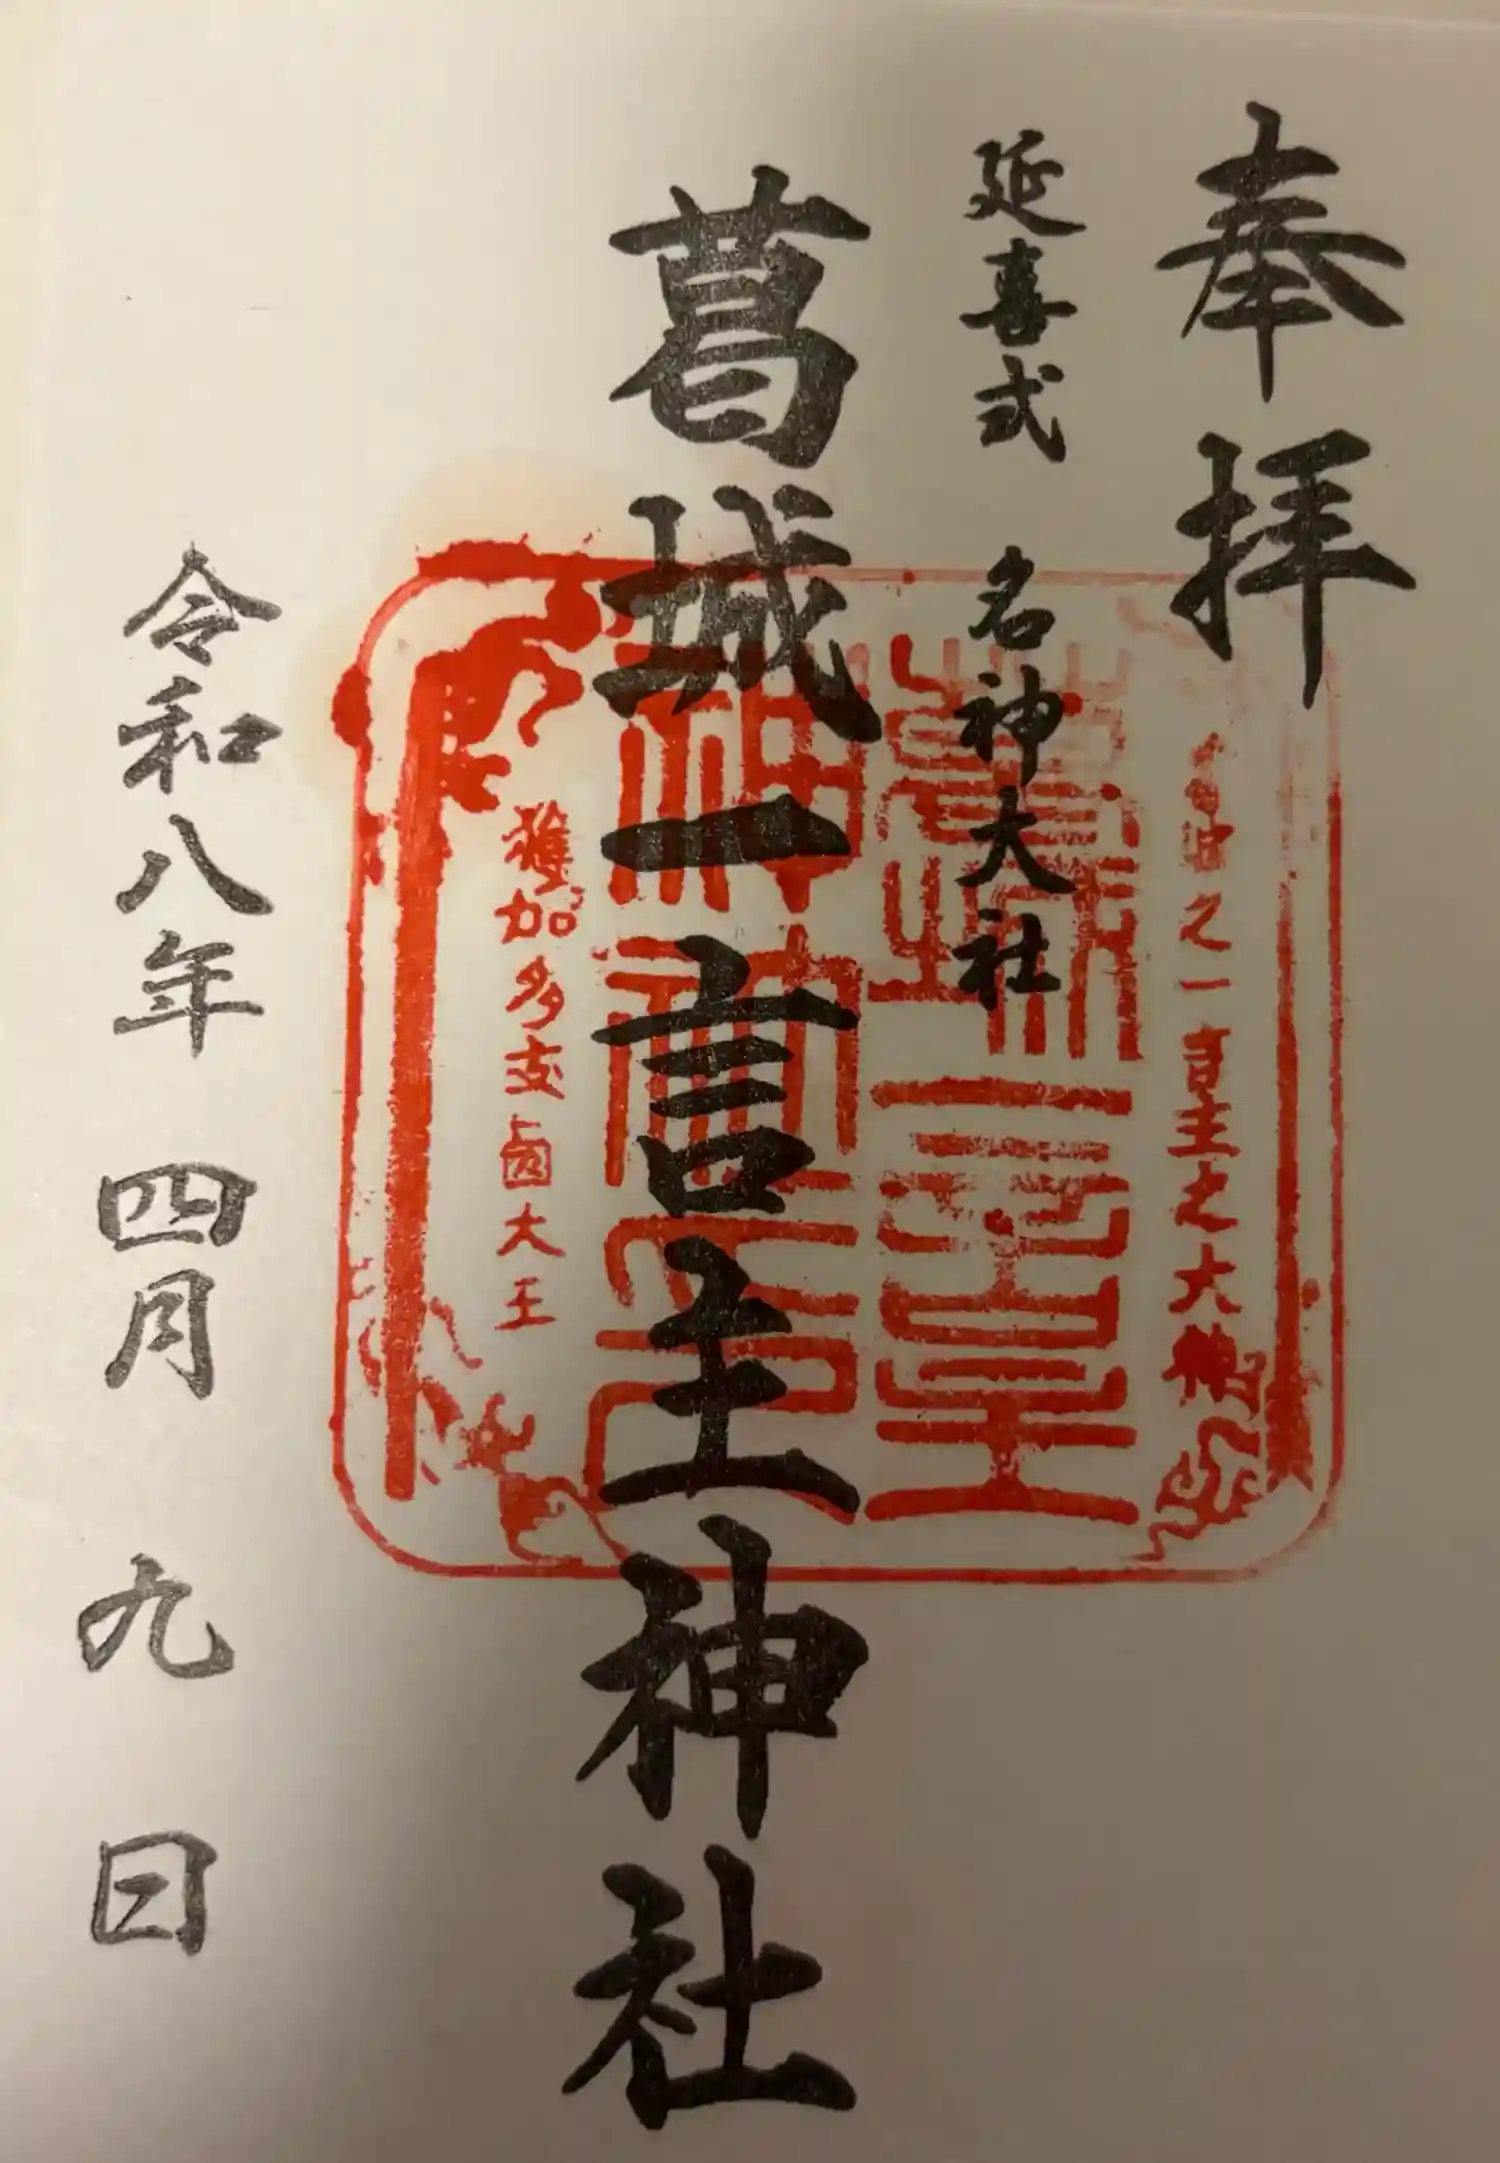 奉拝
延喜式 名神大社
葛城一言主神社
令和八年 四月 九日
之一言主之大神
葛城一言主
神社
獲加多支鹵大王